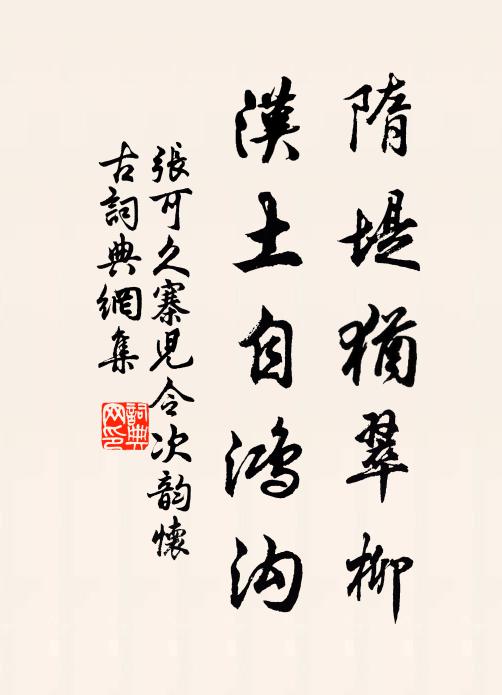 隋堤猶翠柳
漢土自鴻沟
張可久寨児令次韵懷
古詞典網集
詞典
网印